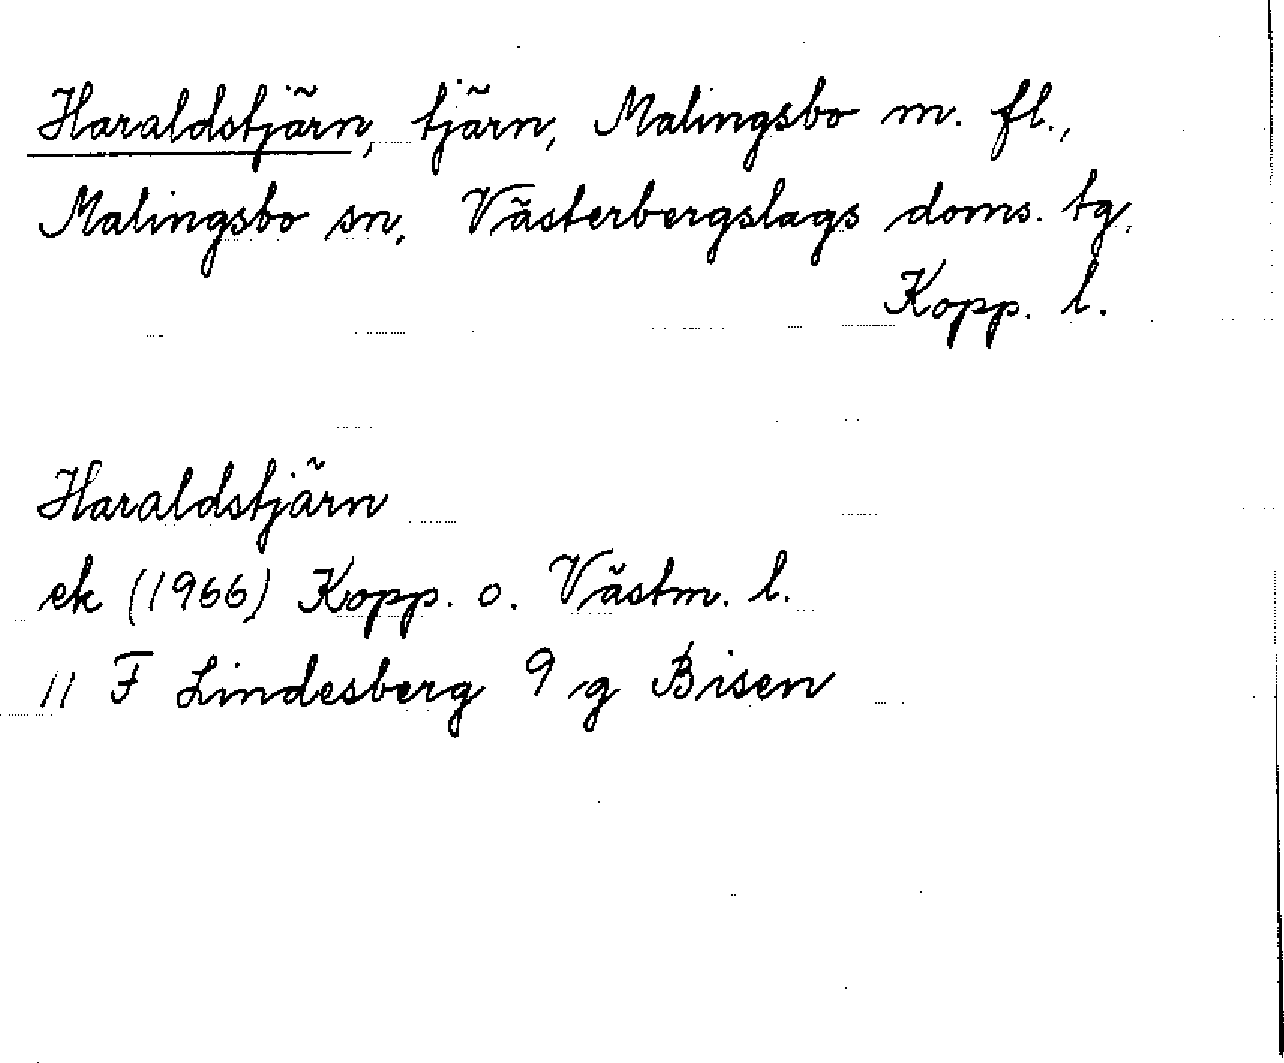 Haraldstjärn, tjärn, Malingsbo m. fl.,
Malingsbo sn, Västerbergslags doms. tg.
Kopp. l.
Haraldstjärn
ek (1966) Kopp. o. Västm. l.
11 F Lindesberg 9 g Bisen